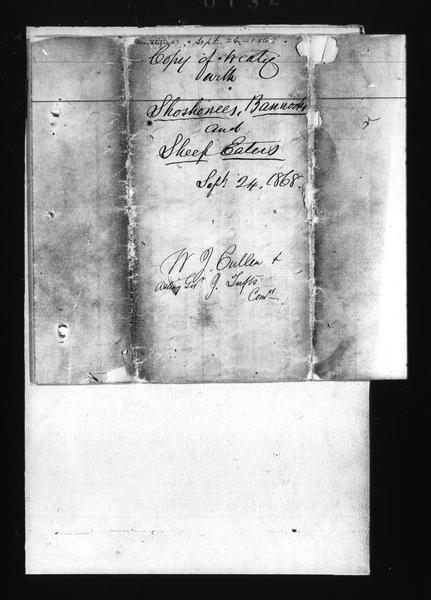 Sept. 24 - 1868
Copy of treaty
with
Shoshonees, Bannocks
and
Sheep Eaters
Sept. 24, 1868.
W. J. Cullen &
Acting Gov. J. Tufts
Com's